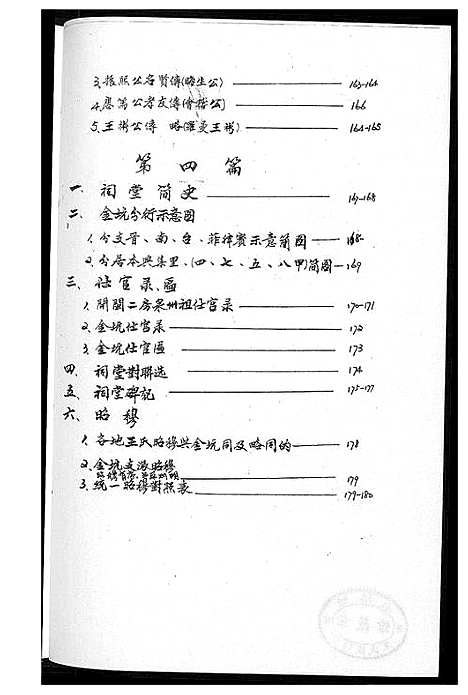 3.振熙公名贤傳(晦生公) 163-164
4.應篤公孝友傳(會楷公) 166
5.王彬公傳 略(羅曼王彬) 164-165
第四篇
一、祠堂简史 167-168
二、金坑分衍示意图
1.分支晋、南、台、菲律賓示意简图 168-
2.分居本興集里、(四、七、五、八甲)简图 169
三、仕官录、匾
1.開閩二房泉州祖仕官录 170-171
2.金坑仕官录 172
3.金坑仕官匾 173
四、祠堂對联选 174
五、祠堂碑記 175-177
六、昭穆
1.各地王氏昭穆與金坑同及略同的 178
2.金坑支派昭穆 179
3.统一昭穆對照表 179-180